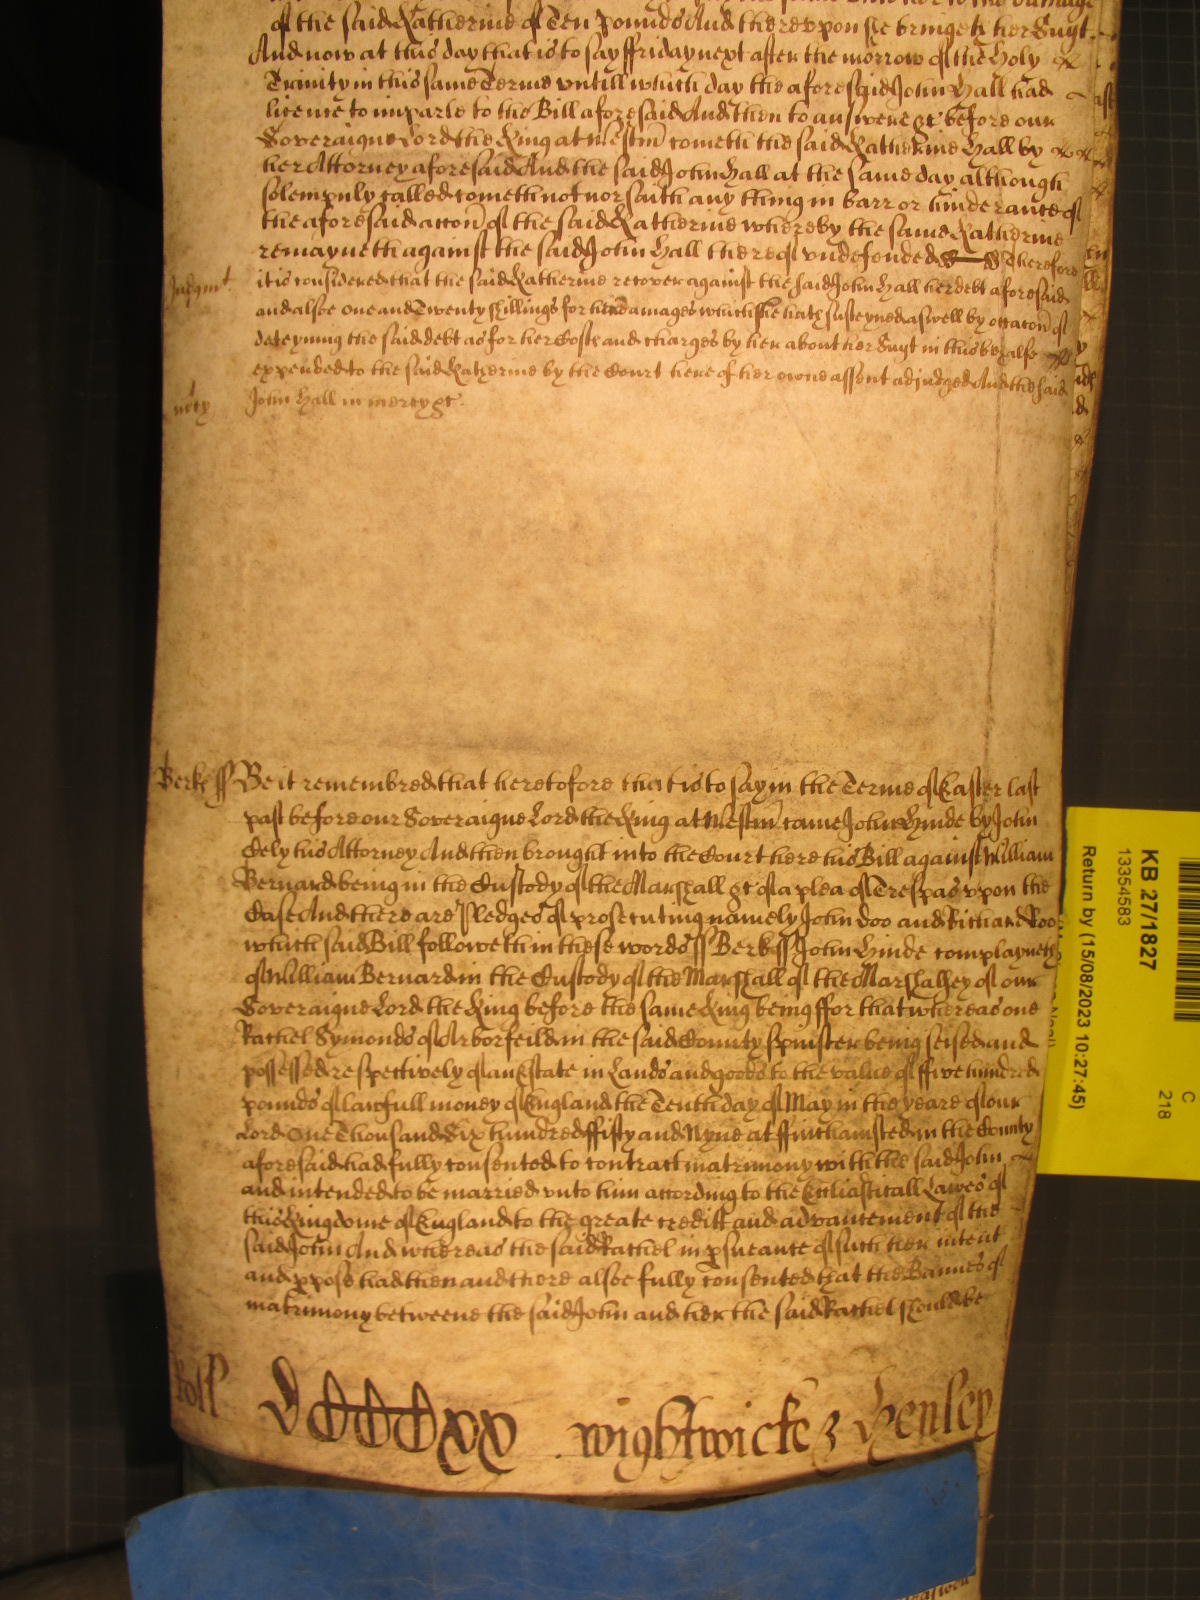 of the said Katherine of Ten pounds And thereupon she bringeth her Suyt
And now at this day that is to say ffriday next after the morrow of the Holy
Trinity in this same Terme untill which day the aforesaid John Hall had
licence to imparle to the Bill aforesaid And then to answere &c before our
Soveraigne Lord the King at Westm cometh the said Katherine Hall by
her Attorney aforesaid And the said John Hall at the same day although
solempnly called cometh not nor saith any thing in barr or hinderance of
the aforesaid accon of the said Katherine whereby the same Katherine
remayneth against the said John Hall thereof undefended Therefore
Judgmt it is considered that the said Katherine recover against the said John Hall her debt aforesaid
and alsoe one and Twenty shillings for her damages which she hath susteyned aswell by occacon of
deteyning the said debt as for her Costs and charges by her about her Suyt in this behalfe
expended to the said Katherine by the Court here of her owne assent adjudged And the said
mcy John Hall in mercy &c.
Berks ss Be it remembred that heretofore that is to say in the Terme of Easter last
past before our Soveraigne Lord the King at Westm came John Hinde by John
Cely his Attorney And then brought into the Court here his Bill against William
Bernard being in the Custody of the Marshall &c of a plea of Trespas upon the
Case And there are Pledges of prosecuting namely John Doo and Richard Roo
which said Bill followeth in these words ss Berks ss John Hinde complayneth
of William Bernard in the Custody of the Marshall of the Marshalsey of our
Soveraigne Lord the King before the same King being ffor that whereas one
Rachel Symonds of Arborfeild in the said County Spinster being seised and
possessed respectively of an Estate in Lands and goods to the value of ffive hundred
pounds of lawfull money of England the Tenth day of May in the yeare of our
Lord One Thousand Six hundred ffifty and Nyne at ffinchamsted in the County
aforesaid had fully consented to contract matrimony with the said John
and intended to be married unto him according to the Eccliasticall Lawes of
this Kingdome of England to the great creditt and advancement of the
said John And whereas the said Rachel in psueance of such her intent
and ppose had then and there alsoe fully consented that the Bannes of
matrimony betweene the said John and her the said Rachel should be
Roll DCCCCxx wightwicke & Henley
KB 27/1827
13354583
Return by (15/08/2023 10:27:45)
C
218